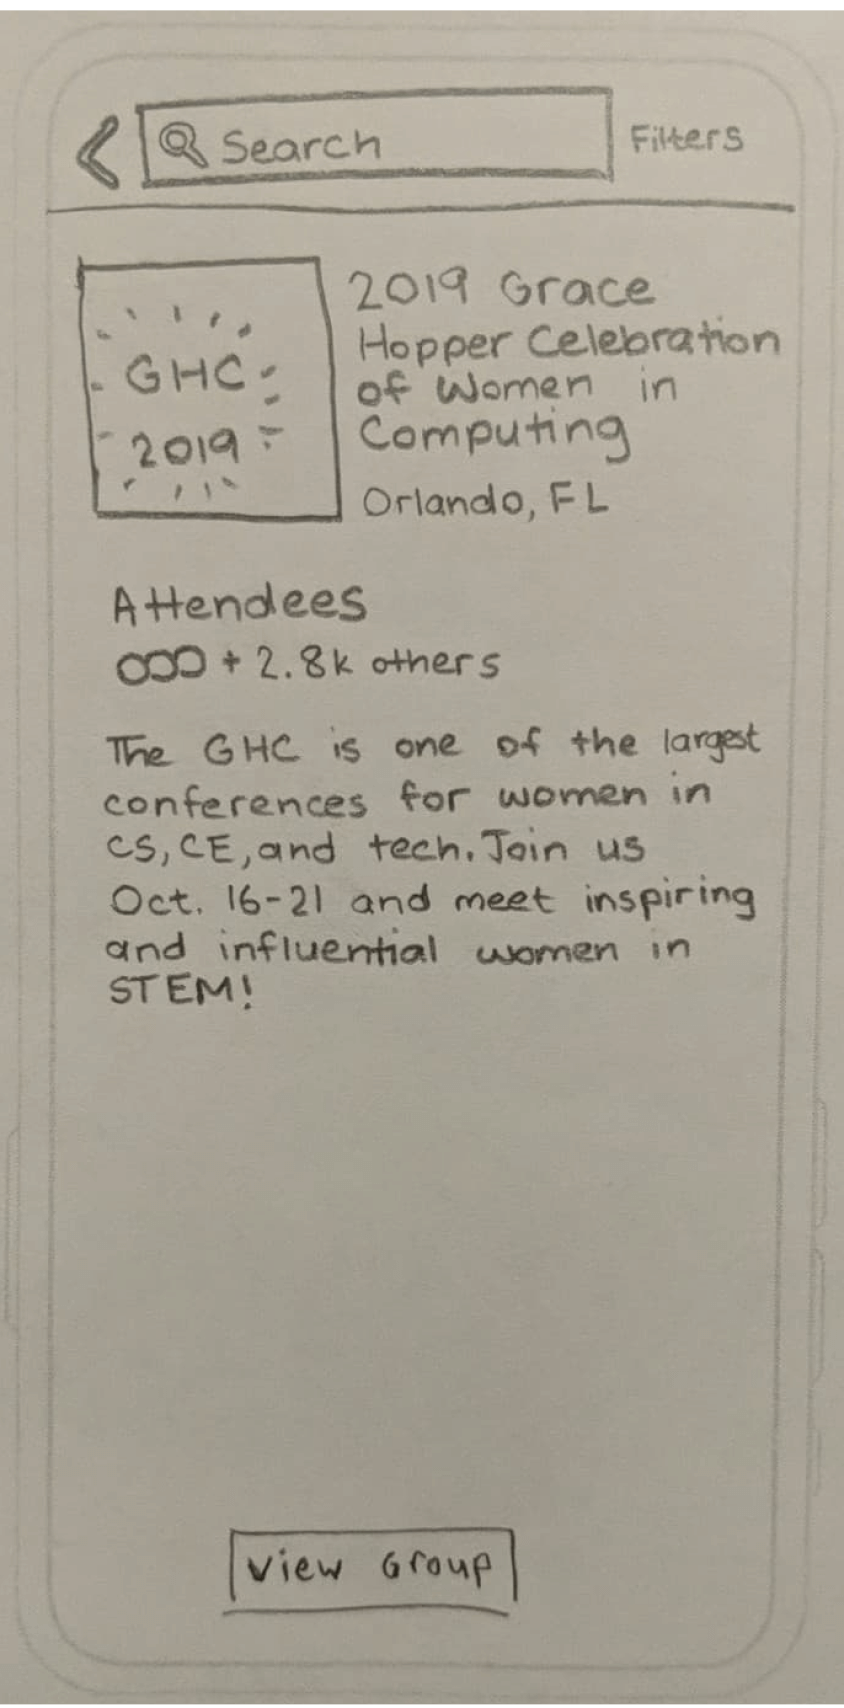 Search
Filters
GHC
2019
2019 Grace
Hopper Celebration
of Women in
Computing
Orlando, FL
Attendees
+ 2.8k others
The GHC is one of the largest
conferences for women in
CS, CE, and tech. Join us
Oct. 16-21 and meet inspiring
and influential women in
STEM!
View Group